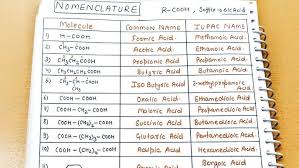 NOMENCLATURE R-COOH, Suffix - oic Acid
Molecule COMMON NAME IUPAC NAME
1) H-COOH Formic Acid Methanoic Acid
2) CH₃-COOH Acetic Acid Ethanoic Acid
3) CH₃CH₂COOH Propionic Acid Propanoic Acid
4) CH₃CH₂CH₂COOH Butyric Acid Butanoic Acid
5) CH₃-CH-COOH Iso Butyric Acid 2-methylpropanoic Acid
CH₃
6) COOH-COOH Oxalic Acid Ethanedioic Acid
7) COOH-CH₂-COOH Malonic Acid Propanedioic Acid
8) COOH-(CH₂)₂-COOH Succinic Acid Butanedioic Acid
9) COOH-(CH₂)₃-COOH Glutaric Acid Pentanedioic Acid
10) COOH-(CH₂)₄-COOH Adipic Acid Hexanedioic Acid